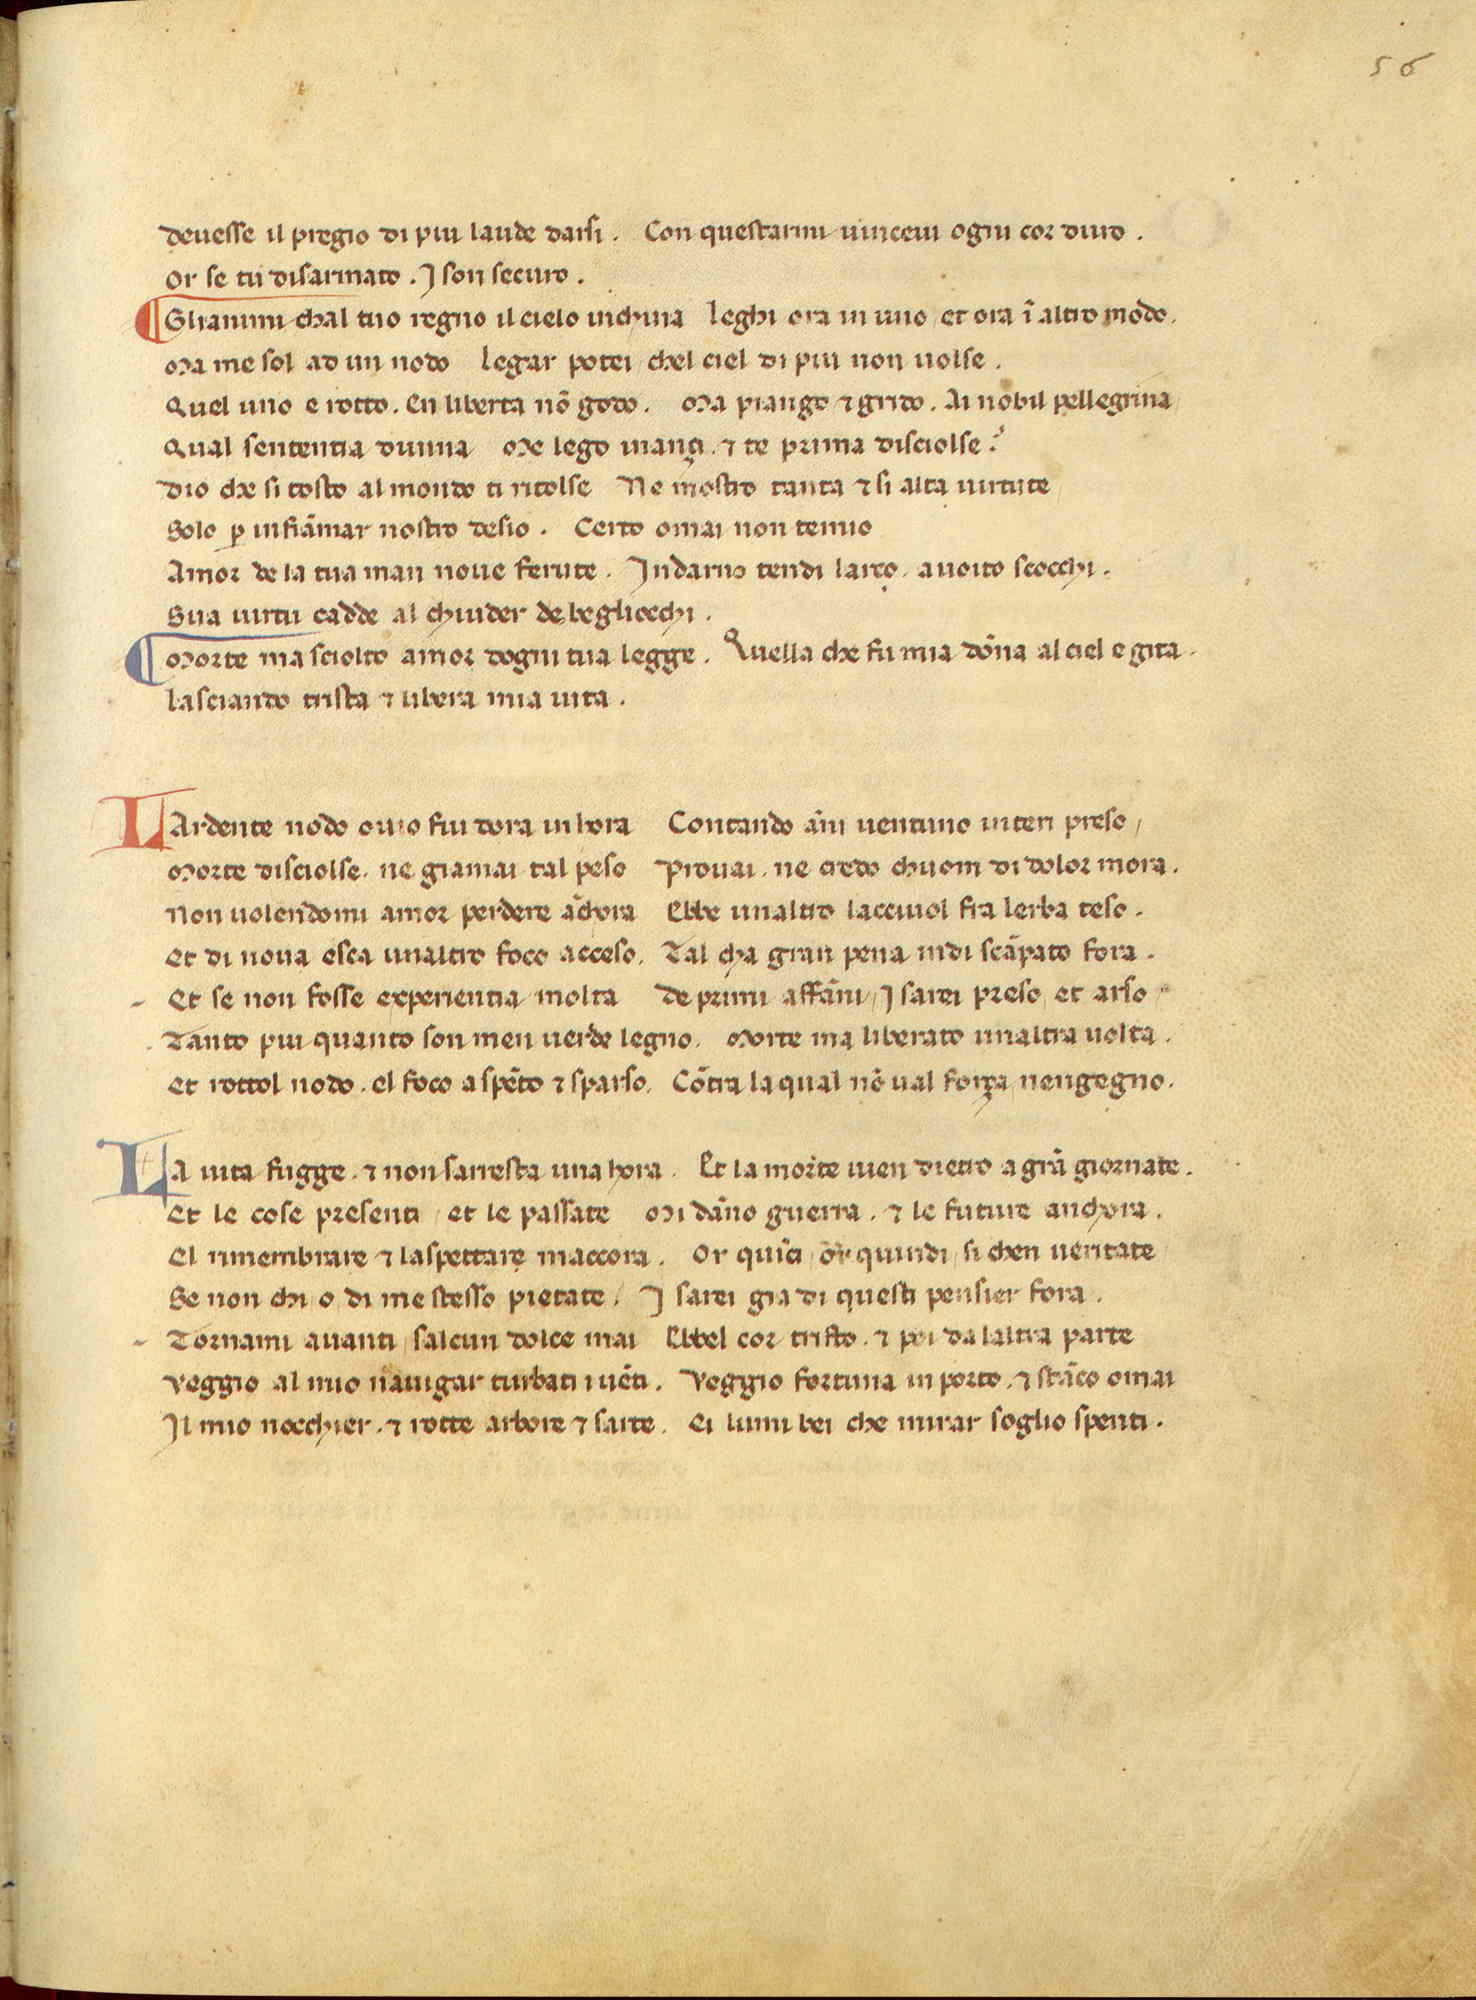 56
deuesse il pregio di piu laude darsi . Con questarmi uinceui ogni cor duro .
Or se tu disarmato . I son securo .
Glianimi chal tuo regno il cielo inchina leghi ora in uno et ora ĩ altro modo .
Ma me sol ad un nodo legar potei chel ciel di piu non uolse .
Quel uno e rotto . En liberta nõ godo . Ma piango ⁊ grido . Ai nobil pellegrina
Qual sententia diuina Me lego inançi . ⁊ te prima disciolse ?
Dio che si tosto al mondo ti ritolse Ne mostro tanta ⁊ si alta uirtute
Solo ꝑ infiãmar nostro desio . Certo omai non temio
Amor de la tua man noue ferute . Indarno tendi larco . a uoito scocchi .
Sua uirtu cadde al chiuder de begliocchi .
Morte ma sciolto amor dogni tua legge . Quella che fu mia dõna al ciel e gita .
lasciando trista ⁊ libera mia uita .
LArdente nodo ouio fui dora in hora Contando ãni uentuno interi preso /
Morte disciolse . ne giamai tal peso Prouai . ne credo chuom di dolor mora .
Non uolendomi amor perdere ãchora Ebbe unaltro lacciuol fra lerba teso .
Et di noua esca unaltro foco acceso . Tal cha gran pena indi scãpato fora .
Et se non fosse experientia molta de primi affãni / I sarei preso et arso
Tanto piu quanto son men uerde legno . Morte ma liberato unaltra uolta .
Et rottol nodo . el foco a spẽto ⁊ sparso . Cõtra la qual nõ ual força nengegno .
LA uita fugge . ⁊ non sarresta una hora . Et la morte uien dietro a grã giornate .
Et le cose presenti / et le passate Mi dãno guerra . ⁊ le future anchora .
El rimembrare ⁊ laspettare maccora . Or quĩci / or quindi / si chen ueritate
Se non chi o di me stesso pietate . I sarei gia di questi pensier fora .
Tornami auanti / salcun dolce mai Ebbel cor tristo . ⁊ poi da laltra parte
Veggio al mio nauigar turbati i uẽti . Veggio fortuna in porto . ⁊ stãco omai
Il mio nocchier . ⁊ rotte arbore ⁊ sarte . Ei lumi bei che mirar soglio spenti .